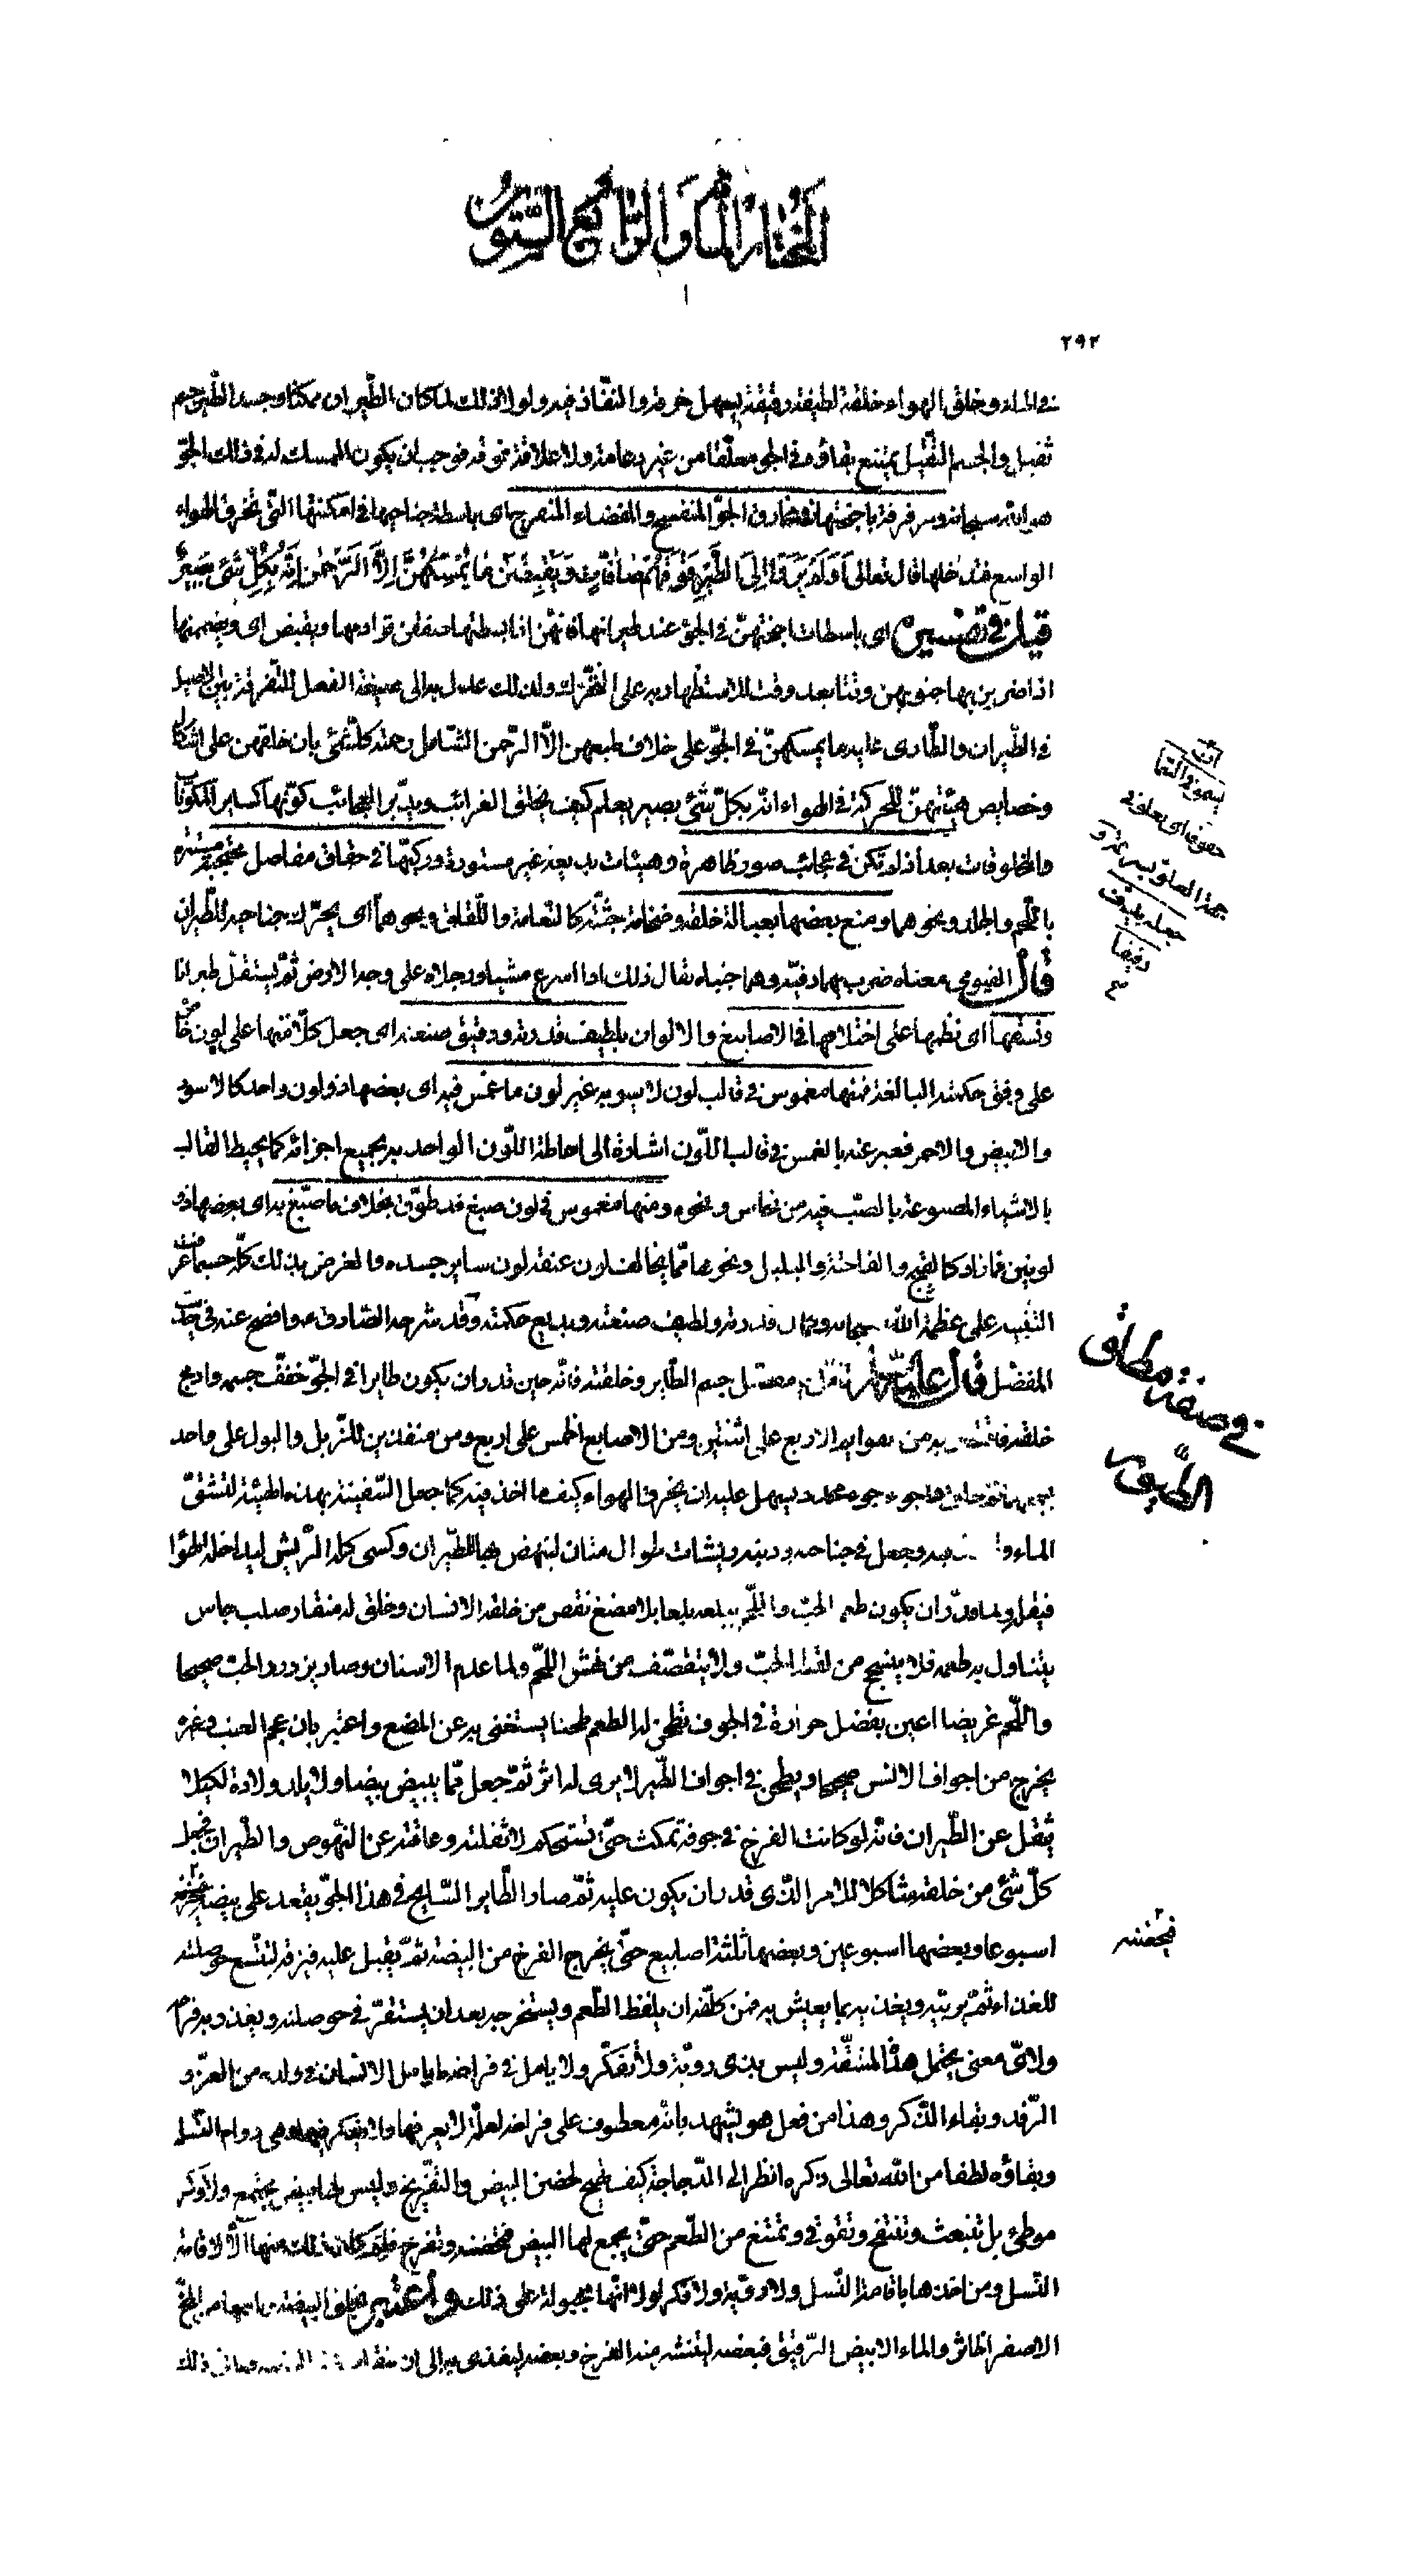 المختار المأة والرابع الستون
٢٩٢
في الماء وخلق الهواء خلقة لطيفة رقيقة يسهل خرقه والنفاذ فيه ولولا ذلك لما كان الطيران ممكنا وجسد الطير جسم
ثقيل والجسم الثقيل يمتنع بقاؤه في الجو معلقا من غير دعامة ولا علاقة فوقه فوجب ان يكون الممسك له في ذلك الجو
هو الله سبحانه ومرفرفة باجنحتها في مخارق الجو المنفسح والفضاء المنفرج اى باسطة جناحيها في امكنتها التي تخرق الهواء
الواسع فتدخلها قال تعالى اَوَلَمْ يَرَوْا اِلَى الطَّيْرِ فَوْقَهُمْ صَافّاتٍ وَيَقْبِضْنَ مَا يُمْسِكُهُنَّ اِلَّا الرَّحْمٰنُ اِنَّهُ بِكُلِّ شَیْءٍ بَصِيرٌ
قيل في تفسيره اى باسطات اجنحتهن في الجو عند طيرانها فانهن اذا بسطنها صففن قوادمها ويقبضن اى ويضممنها
اذا ضربن بها جنوبهن وقتا بعد وقت للاستظهار به على التحرك ولذلك عدل به الى صيغة الفعل للتفرقة بين الاصيل
في الطيران والطارى عليه ما يمسكهن في الجو على خلاف طبعهن الا الرحمن الشامل رحمته كل شئ بان خلقهن على اشكال
وخصايص هيئتهن للحركة في الهواء انه بكل شئ بصير يعلم كيف يخلق الغرائب ويدبر العجائب كونها كساير المكونات
والمخلوقات بعد اذ لم تكن في عجائب صور ظاهرة وهيئات بديعة غير مستورة وركبها في حقاق مفاصل محتجبة مستترة
باللحم والجلد ونحوهما ومنع بعضها بعبالة خلقه وضخامة جثته كالنعامة واللقلق ونحوهما اى يحرك جناحيه للطيران
قال الفيومى معناه ضرب بهما دفيه وهما جنباه يقال ذلك اذا اسرع مشيا ورجلاه على وجه الارض ثم يستقل طيرانا
ونسقها اى نظمها على اختلافها في الاصابيغ والالوان بلطيف قدرته ودقيق صنعته اى جعل كلا منها على لون خاص
على وفق حكمته البالغة فمنها مغموس في قالب لون لا يشوبه غير لون ما غمس فيه اى بعضها ذو لون واحد كالاسود
والابيض والاحمر فعبر عنه بالغمس في قالب اللون اشارة الى احاطة اللون الواحد به بجميع اجزائه كما يحيط القالب
بالاشياء المصبوغة بالصب فيه من نحاس ونحوه ومنها مغموس في لون صبغ قد طوق بخلاف ما صبغ به اى بعضها ذو
لونين فما زاد كالقبج والفاختة والبلبل ونحوها مما يخالف لون عنقه لون ساير جسده والغرض بذلك كله حسبما عرفت
التنبيه على عظمة الله سبحانه وكمال قدرته ولطيف صنعته وبديع حكمته وقد شرحه الصادق ع وافصح عنه في حديث
المفضل قال عليه السلام تأمل يا مفضل جسم الطاير وخلقته فانه حين قدر ان يكون طايرا في الجو خفف جسمه وادمج
خلقه فاقتصر به من القوايم الاربع على اثنتين ومن الاصابع الخمس على اربع ومن منفذين للزبل والبول على واحد
يجمعهما ثم خلق ذا جؤجؤ محدد يسهل عليه ان يخرق الهواء كيف ما اخذ فيه كما جعل السفينة بهذه الهيئة لتشق
الماء و فيه وجعل في جناحيه وذنبه ريشات طوال متان لينهض بها للطيران وكسى كله الريش ليداخله الهواء
فيقله ولما قدر ان يكون طعمه الحب واللحم يبلعه بلعا بلا مضغ نقص من خلقه الانسان وخلق له منقار صلب جاس
يتناول به طعمه فلا ينسحج من لقط الحب ولا يتقصف من نهش اللحم ولما عدم الاسنان وصار يزدرد الحب صحيحا
واللحم غريضا اعين بفضل حرارة في الجوف تطحن له الطعم طحنا يستغنى به عن المضغ واعتبر بان عجم العنب وغيره
يخرج من اجواف الانس صحيحا ويطحن في اجواف الطير لا يرى له اثر ثم جعل مما يبيض بيضا ولا يلد ولادة لكيلا
يثقل عن الطيران فانه لو كانت الفرخ في جوفه تمكث حتى تستحكم لاثقلته وعاقته عن النهوض والطيران فجعل
كل شئ من خلقه مشاكلا للامر الذى قدر ان يكون عليه ثم صار الطاير السابح في هذا الجو يقعد على بيضه فيحضنه
اسبوعا وبعضها اسبوعين وبعضها ثلثة اصابيع حتى يخرج الفرخ من البيضة ثم يقبل عليه فيزقه لتتسع حوصلته
للغذاء ثم يربيه ويغذيه بما يعيش به فمن كلفه ان يلفظ الطعم ويستخرجه بعد ان يستقر في حوصلته ويغذو به فراخه
ولاى معنى يحتمل هذه المشقة وليس بذى روية ولا تفكر ولا يامل في فراخه ما يامل الانسان في ولده من العز و
الرفد وبقاء الذكر وهذا من فعل هو يشهد بانه معطوف على فراخه لعلة لا يعرفها ولا يفكر فيها وهى دوام النسل
وبقاؤه لطفا من الله تعالى ذكره انظر الى الدجاجة كيف تهيج لحضن البيض والتفريخ وليس لها بيض مجتمع ولا وكر
موطئ بل تنبعث وتنتفخ وتقوقى وتمتنع من الطعم حتى يجمع لها البيض فتحضنه وتفرخ فلم كان ذلك منها الا لاقامة
النسل ومن اخذها باقامة النسل ولا روية ولا فكر لولا انها مجبولة على ذلك واعتبر بخلق البيضة وما فيها من المح
الاصفر الخاثر والماء الابيض الرقيق فبعضه لينتشر منه الفرخ وبعضه ليغذى به الى ان
في وصفة مطلق
الطيور
فيحضنه